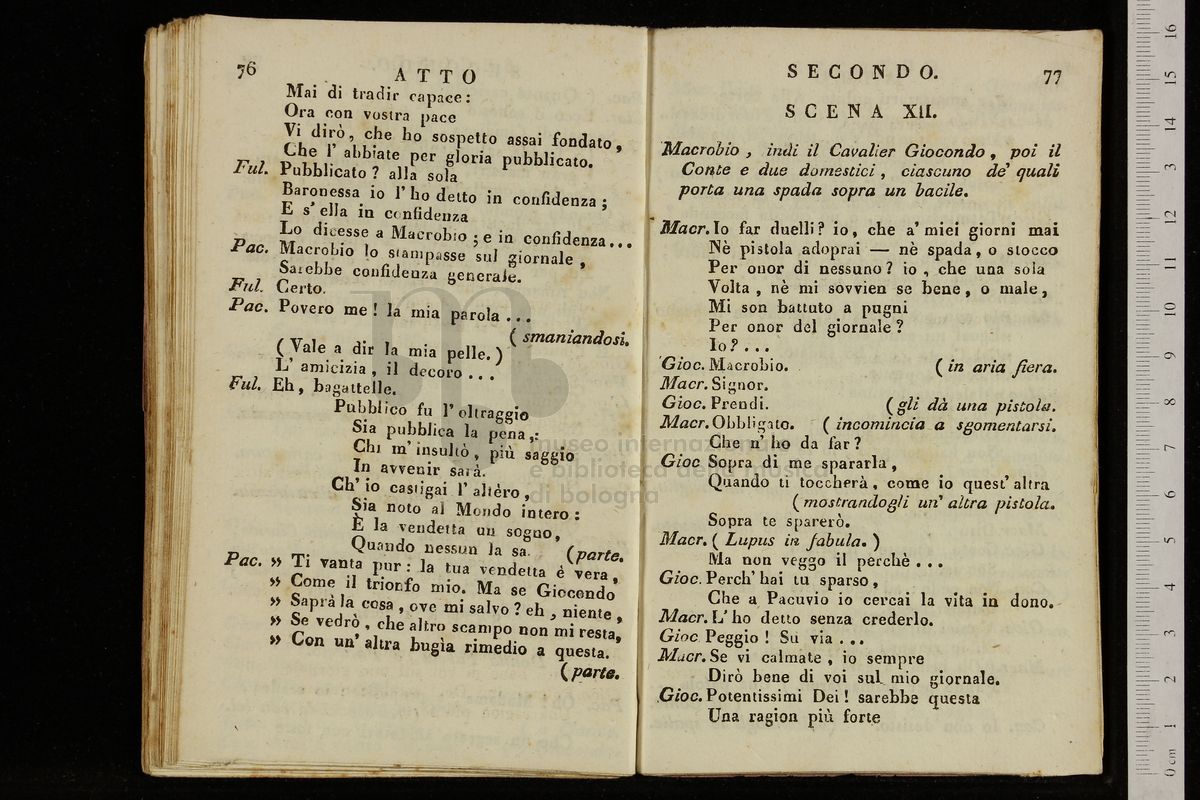 76
ATTO
Mai di tradir capace:
Ora con vostra pace
Vi dirò, che ho sospetto assai fondato,
Che l' abbiate per gloria pubblicato.
Ful. Pubblicato? alla sola
Baronessa io l' ho detto in confidenza;
E s' ella in confidenza
Lo dicesse a Macrobio; e in confidenza...
Pac. Macrobio lo stampasse sul giornale,
Sarebbe confidenza generale.
Ful. Certo.
Pac. Povero me! la mia parola...
( smaniandosi.
( Vale a dir la mia pelle.)
L' amicizia, il decoro...
Ful. Eh, bagattelle.
Pubblico fu l' oltraggio
Sia pubblica la pena,:
Chi m' insultò, più saggio
In avvenir sarà.
Ch' io castigai l' altèro,
Sia noto al Mondo intero:
È la vendetta un sogno,
Quando nessun la sa. (parte.
Pac. » Ti vanta pur: la tua vendetta è vera,
» Come il trionfo mio. Ma se Giocondo
» Saprà la cosa, ove mi salvo? eh, niente,
» Se vedrò, che altro scampo non mi resta,
» Con un' altra bugìa rimedio a questa.
(parte.
SECONDO.
77
SCENA XII.
Macrobio, indi il Cavalier Giocondo, poi il
Conte e due domestici, ciascuno de' quali
porta una spada sopra un bacile.
Macr. Io far duelli? io, che a' miei giorni mai
Nè pistola adoprai — nè spada, o stocco
Per onor di nessuno? io, che una sola
Volta, nè mi sovvien se bene, o male,
Mi son battuto a pugni
Per onor del giornale?
Io?...
Gioc. Macrobio. ( in aria fiera.
Macr. Signor.
Gioc. Prendi. (gli dà una pistola.
Macr. Obbligato. ( incomincia a sgomentarsi.
Che n' ho da far?
Gioc Sopra di me spararla,
Quando ti toccherà, come io quest' altra
(mostrandogli un' altra pistola.
Sopra te sparerò.
Macr. ( Lupus in fabula. )
Ma non veggo il perchè...
Gioc. Perch' hai tu sparso,
Che a Pacuvio io cercai la vita in dono.
Macr. L' ho detto senza crederlo.
Gioc Peggio! Su via...
Macr. Se vi calmate, io sempre
Dirò bene di voi sul mio giornale.
Gioc. Potentissimi Dei! sarebbe questa
Una ragion più forte
museo internazionale
e biblioteca della musica
di bologna
0 cm 1 2 3 4 5 6 7 8 9 10 11 12 13 14 15 16